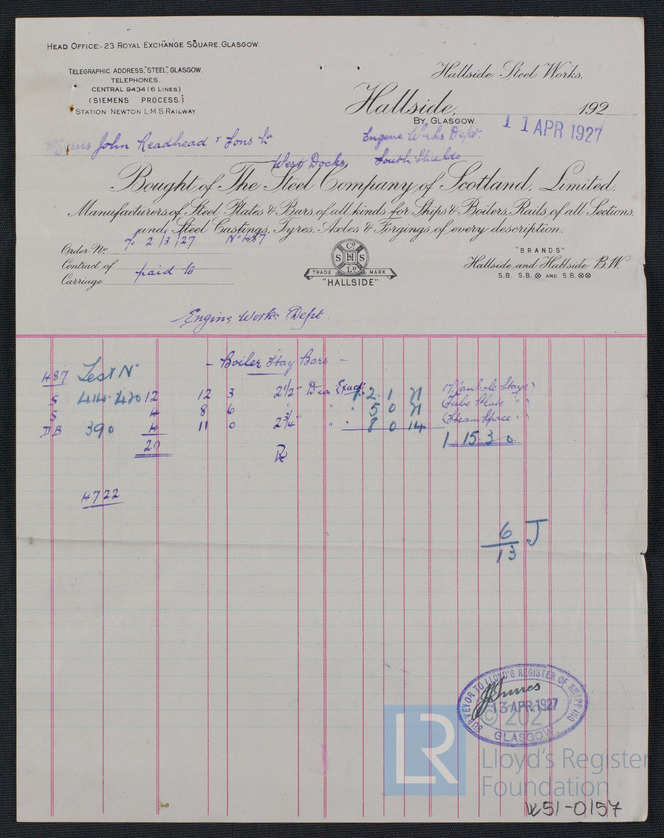 HEAD OFFICE:- 23 ROYAL EXCHANGE SQUARE, GLASGOW.
TELEGRAPHIC ADDRESS, "STEEL", GLASGOW.
TELEPHONES,
CENTRAL 9434 (6 LINES)
(SIEMENS PROCESS)
STATION NEWTON L.M.S. RAILWAY.
Hallside Steel Works,
Hallside, 192
BY GLASGOW. 11 APR 1927
Messrs John Readhead & Sons Ld Engine Works Dept.
West Docks, South Shields
Bought of The Steel Company of Scotland, Limited.
Manufacturers of Steel Plates & Bars of all kinds for Ships & Boilers, Rails of all Sections,
and Steel Castings, Tyres, Axles & Forgings of every description.
Order No. 7. 2/3/27 No 487
Contract of
Carriage paid to
Co
S H S
Ld
TRADE MARK
"HALLSIDE"
"BRANDS"
Hallside and Hallside B.W.
S.B. S.B. ⊗ AND S.B. ⊗⊗
Engine Works Dept.
487 Test No - Boiler Stay Bars -
S 414.420 12 12 3 2½" Dia Exact 1. 2. 1 21 Manhole Stays
S 4 8 6 " " 5 0 21 Tube Plate " "
DB 390 4 11 0 2¾" " " 8 0 14 Steam Space " "
20 1 15. 3 0
4722
6/13 J
SURVEYOR TO LLOYD'S REGISTER OF SHIPPING
13 APR 1927
GLASGOW
LR
Lloyd's Register
Foundation
W51-0157